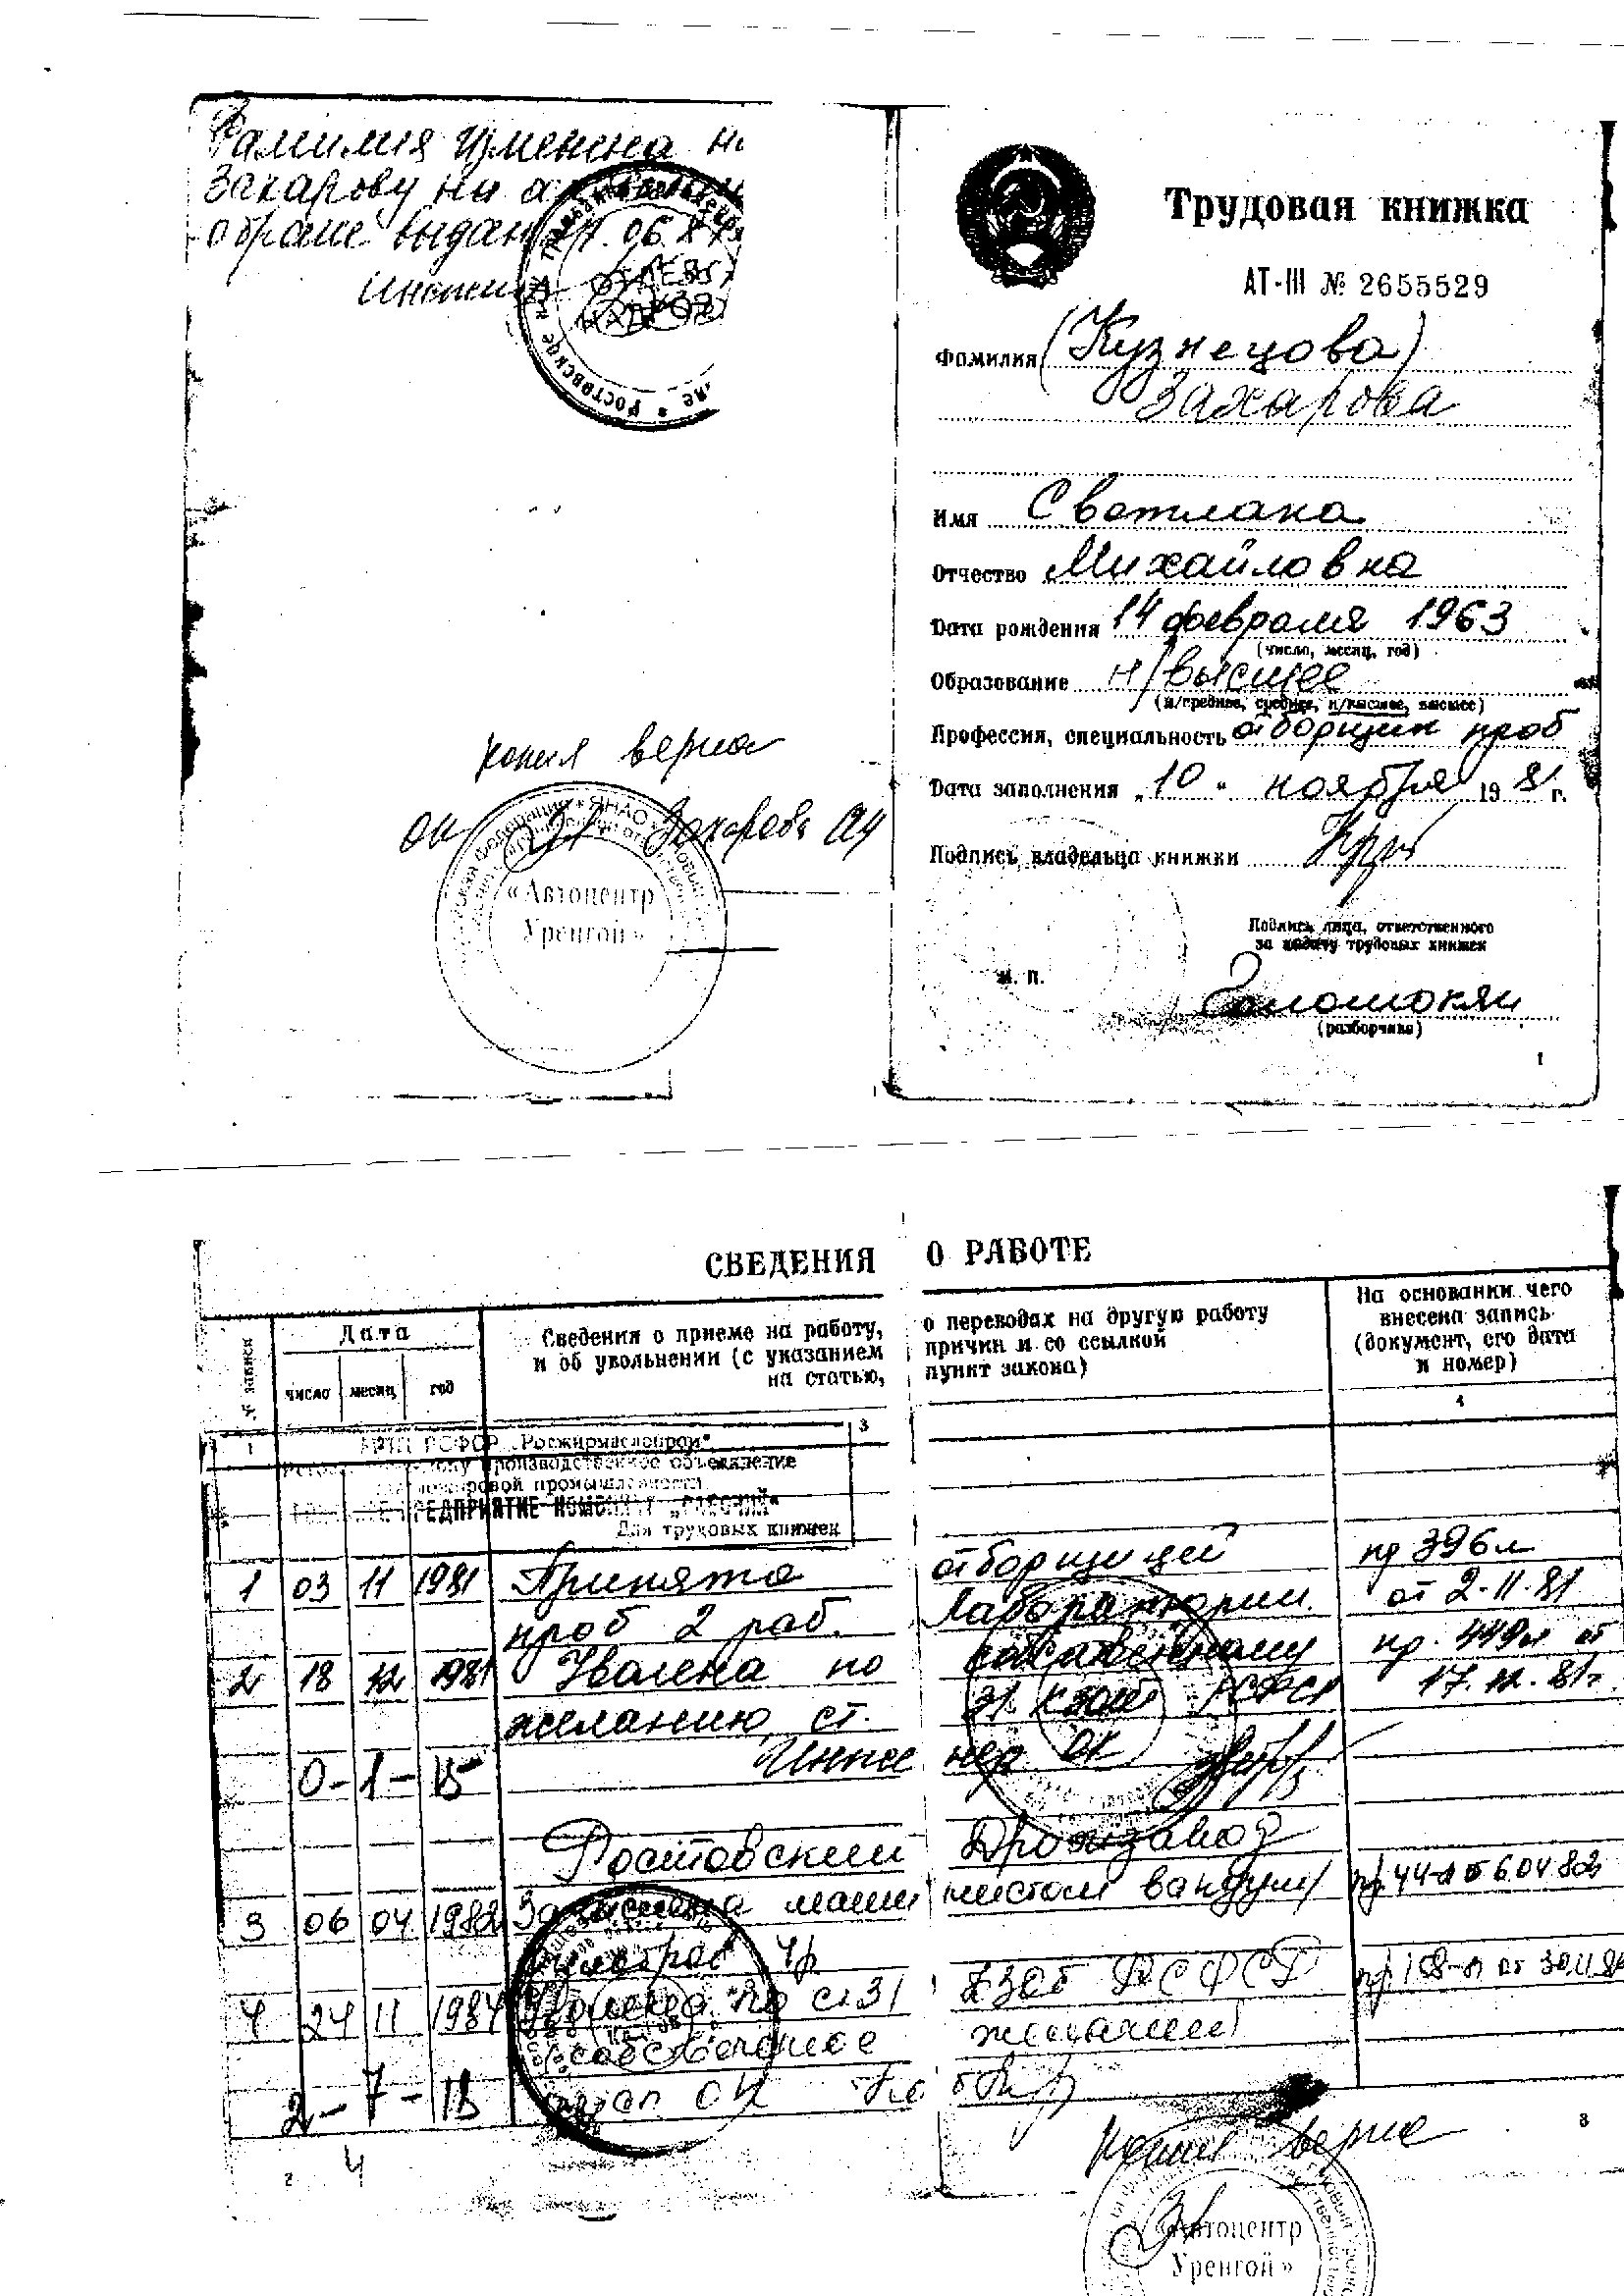 Фамилия изменена на
Захарову на
о браке выдан 06
Инспектор
копия верна
ОК Захарова
«Автоцентр
Уренгой»
Трудовая книжка
АТ-III № 2655529
Фамилия (Кузнецова)
Захарова
Имя Светлана
Отчество Михайловна
Дата рождения 14 февраля 1963
(число, месяц, год)
Образование н/высшее
(н/среднее, среднее, н/высшее, высшее)
Профессия, специальность отборщик проб
Дата заполнения „10“ ноября 1981 г.
Подпись владельца книжки
Подпись лица, ответственного
за выдачу трудовых книжек
м. п.
(разборчиво)
1
СВЕДЕНИЯ О РАБОТЕ
№ записи
Дата
число месяц год
Сведения о приеме на работу, о переводах на другую работу
и об увольнении (с указанием причин и со ссылкой
на статью, пункт закона)
На основании чего
внесена запись
(документ, его дата
и номер)
1 3 4
РСФСР „Росжирмаслопром“
производственное объединение
масложировой промышленности
ПРЕДПРИЯТИЕ КОМБИНАТ „РАБОЧИЙ“
Для трудовых книжек
1 03 11 1981 Принята отборщицей пр 396л
проб 2 раз. Лаборатории. от 2.11.81
2 18 12 1981 Уволена по собственному пр. 449л от
желанию, ст. 31 КЗоТ РСФСР 17.12.81г.
0-1-15 Инженер ОК
Ростовский Дрожзавод
3 06 04 1982 Зачислена машинистом вакуум пр 44-л
4р
4 24 11 1984 Уволена по ст 31 КЗоТ РСФСР
собственное желание
2-7-18 ОК
копия верна
2 4 3
«Автоцентр
Уренгой»